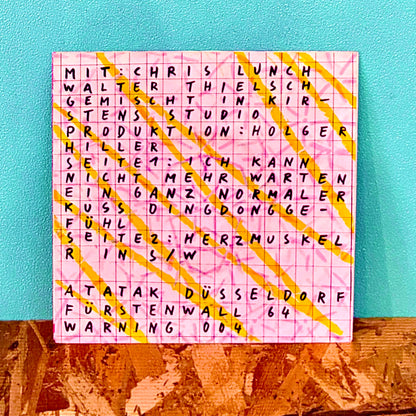 MIT:CHRIS LUNCH
WALTER THIELSCH
GEMISCHT IN KIR-
STENS STUDIO
PRODUKTION:HOLGER
HILLER
SEITE1:ICH KANN
NICHT MEHR WARTEN
EIN GANZ NORMALER
KUSS DINGDONGGE-
FÜHL
SEITE2:HERZMUSKEL
R IN S/W
ATATAK DÜSSELDORF
FÜRSTENWALL 64
WARNING 004